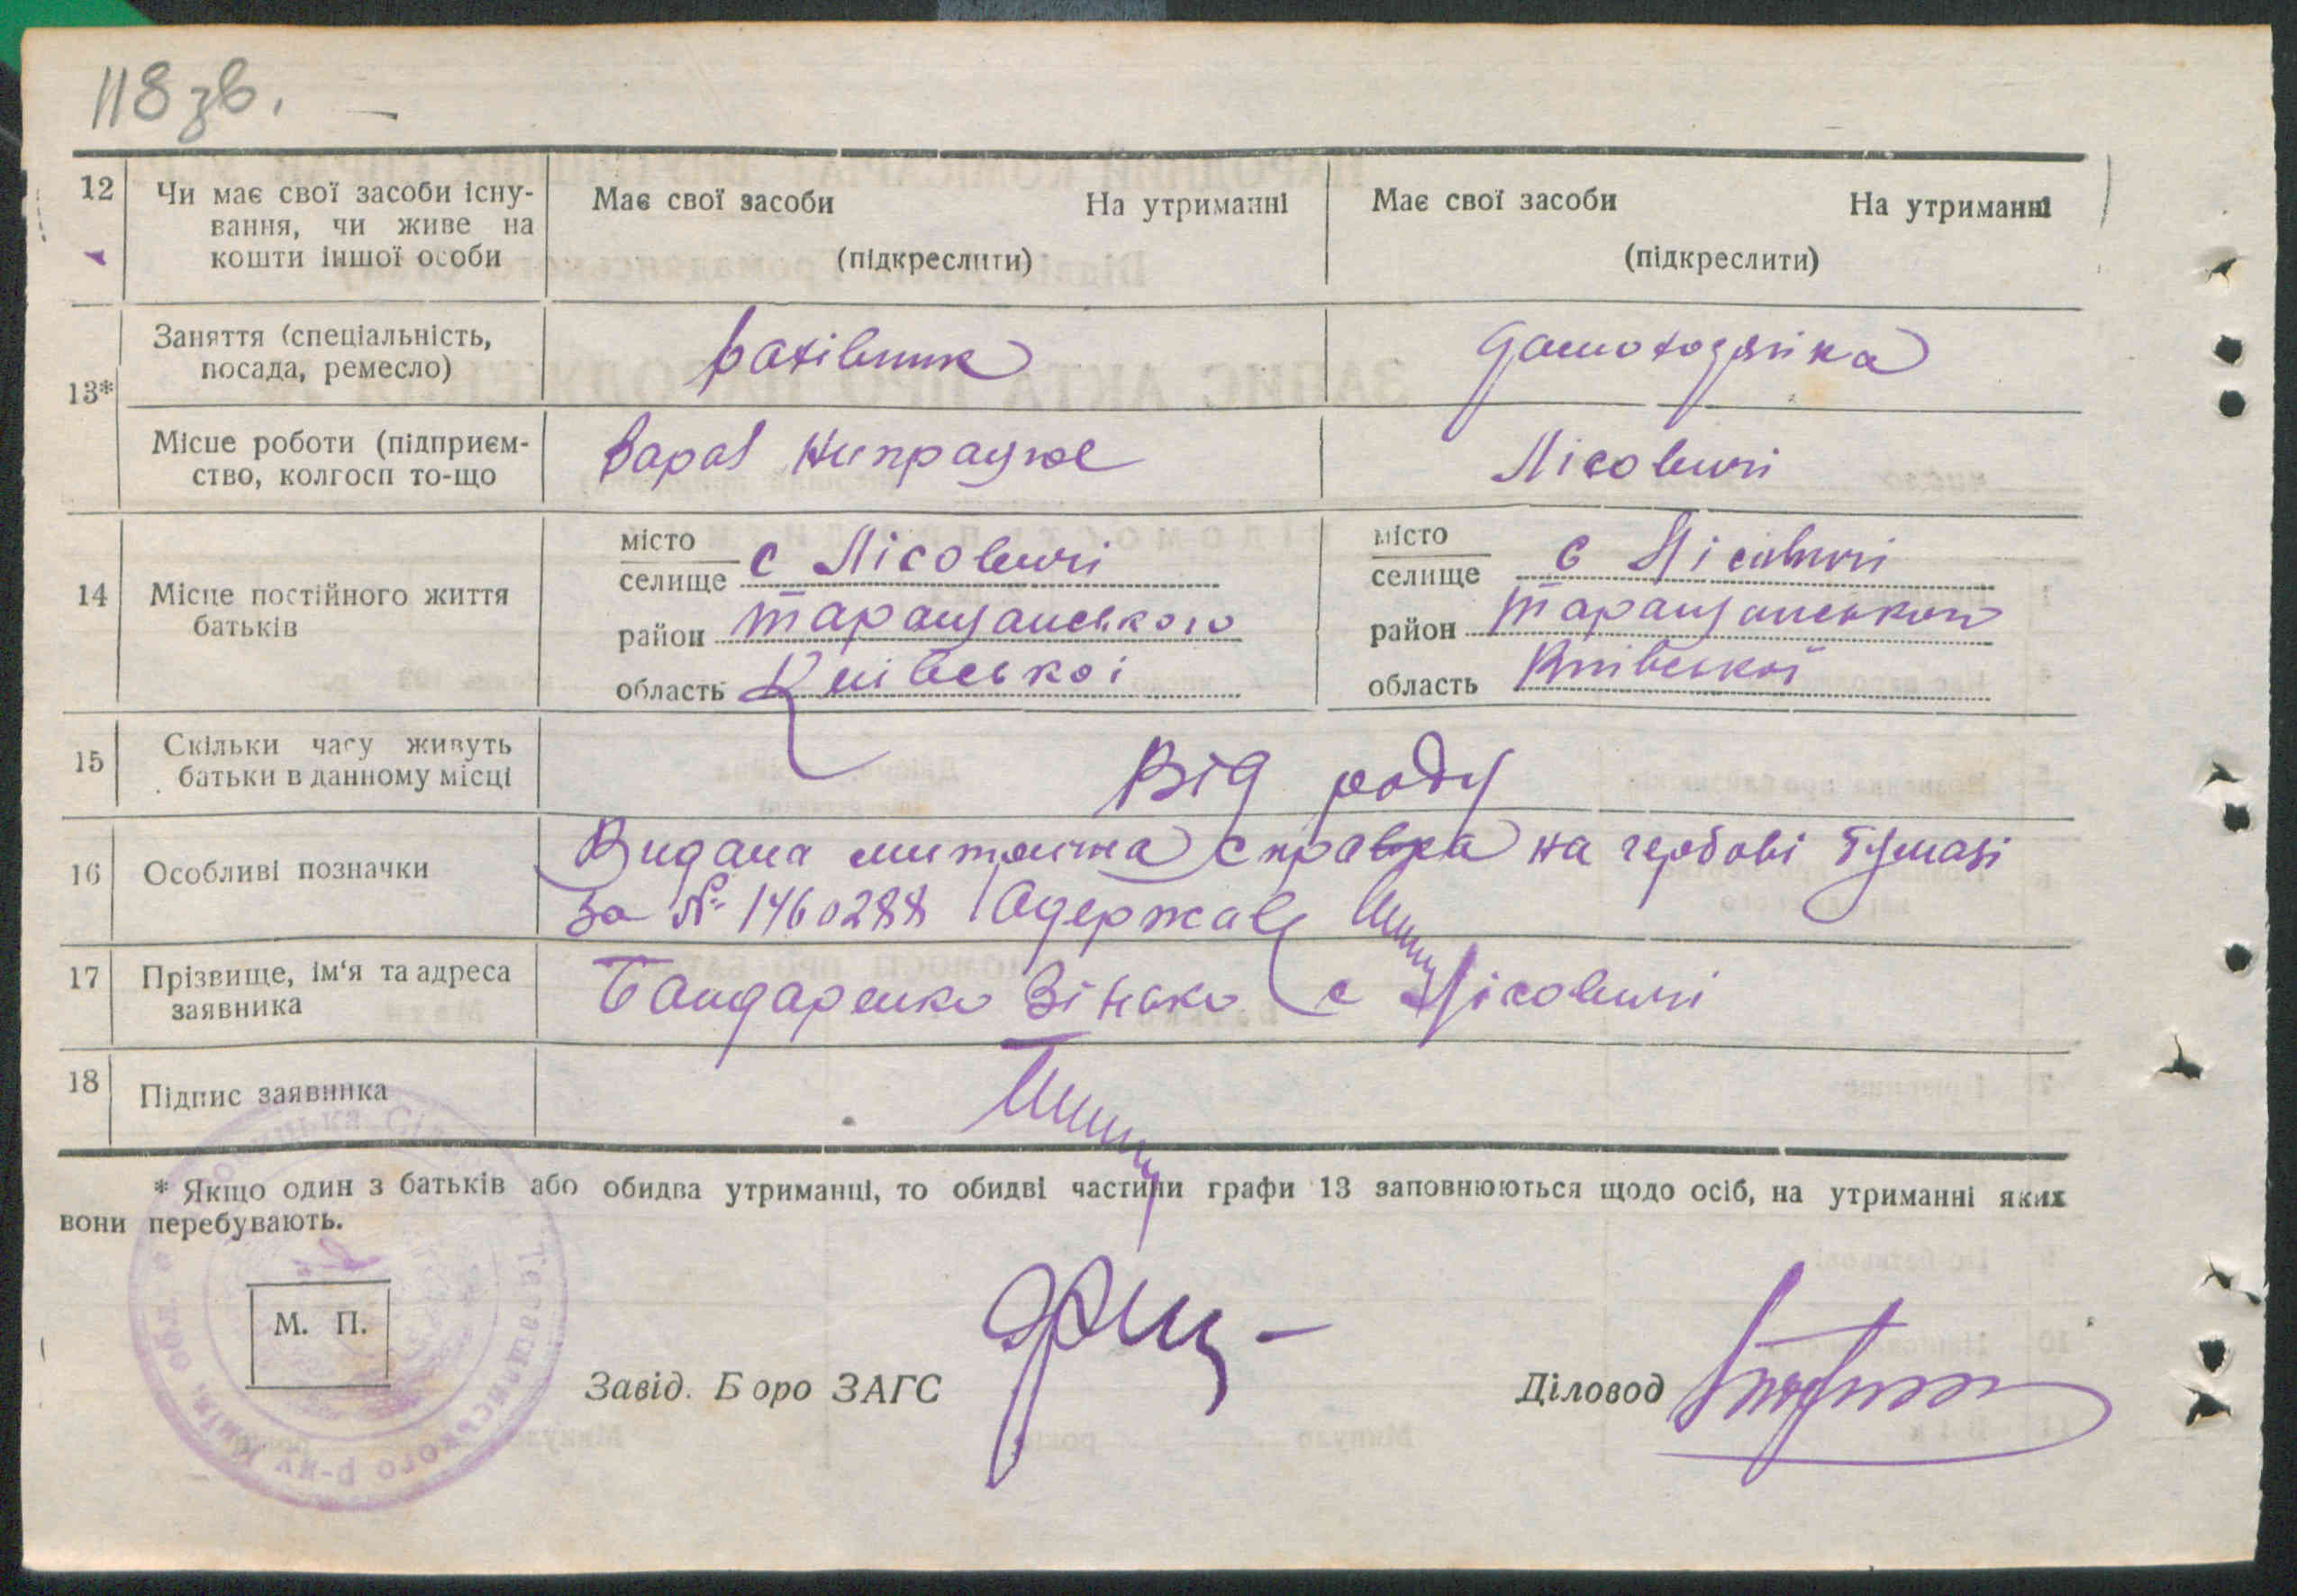 118 зв.
12 Чи має свої засоби існу- Має свої засоби На утриманні Має свої засоби На утриманні
вання, чи живе на
кошти іншої особи (підкреслити) (підкреслити)
13* Заняття (спеціальність,
посада, ремесло) домохозяйка
Місце роботи (підприєм-
ство, колгосп то-що Лісовичі
14 Місце постійного життя
батьків
місто
селище с Лісовичі
район Таращанського
область Київської
місто
селище с Лісовичі
район Таращанського
область Київської
15 Скільки часу живуть
батьки в данному місці Від роду
16 Особливі позначки Видана справка на гербові бумазі
за № 1460288 Одержав
17 Прізвище, ім‘я та адреса
заявника Бондаренко Зінько с Лісовичі
18 Підпис заявника
* Якщо один з батьків або обидва утриманці, то обидві частини графи 13 заповнюються щодо осіб, на утриманні яких
вони перебувають.
М. П.
Завід. Бюро ЗАГС
Діловод